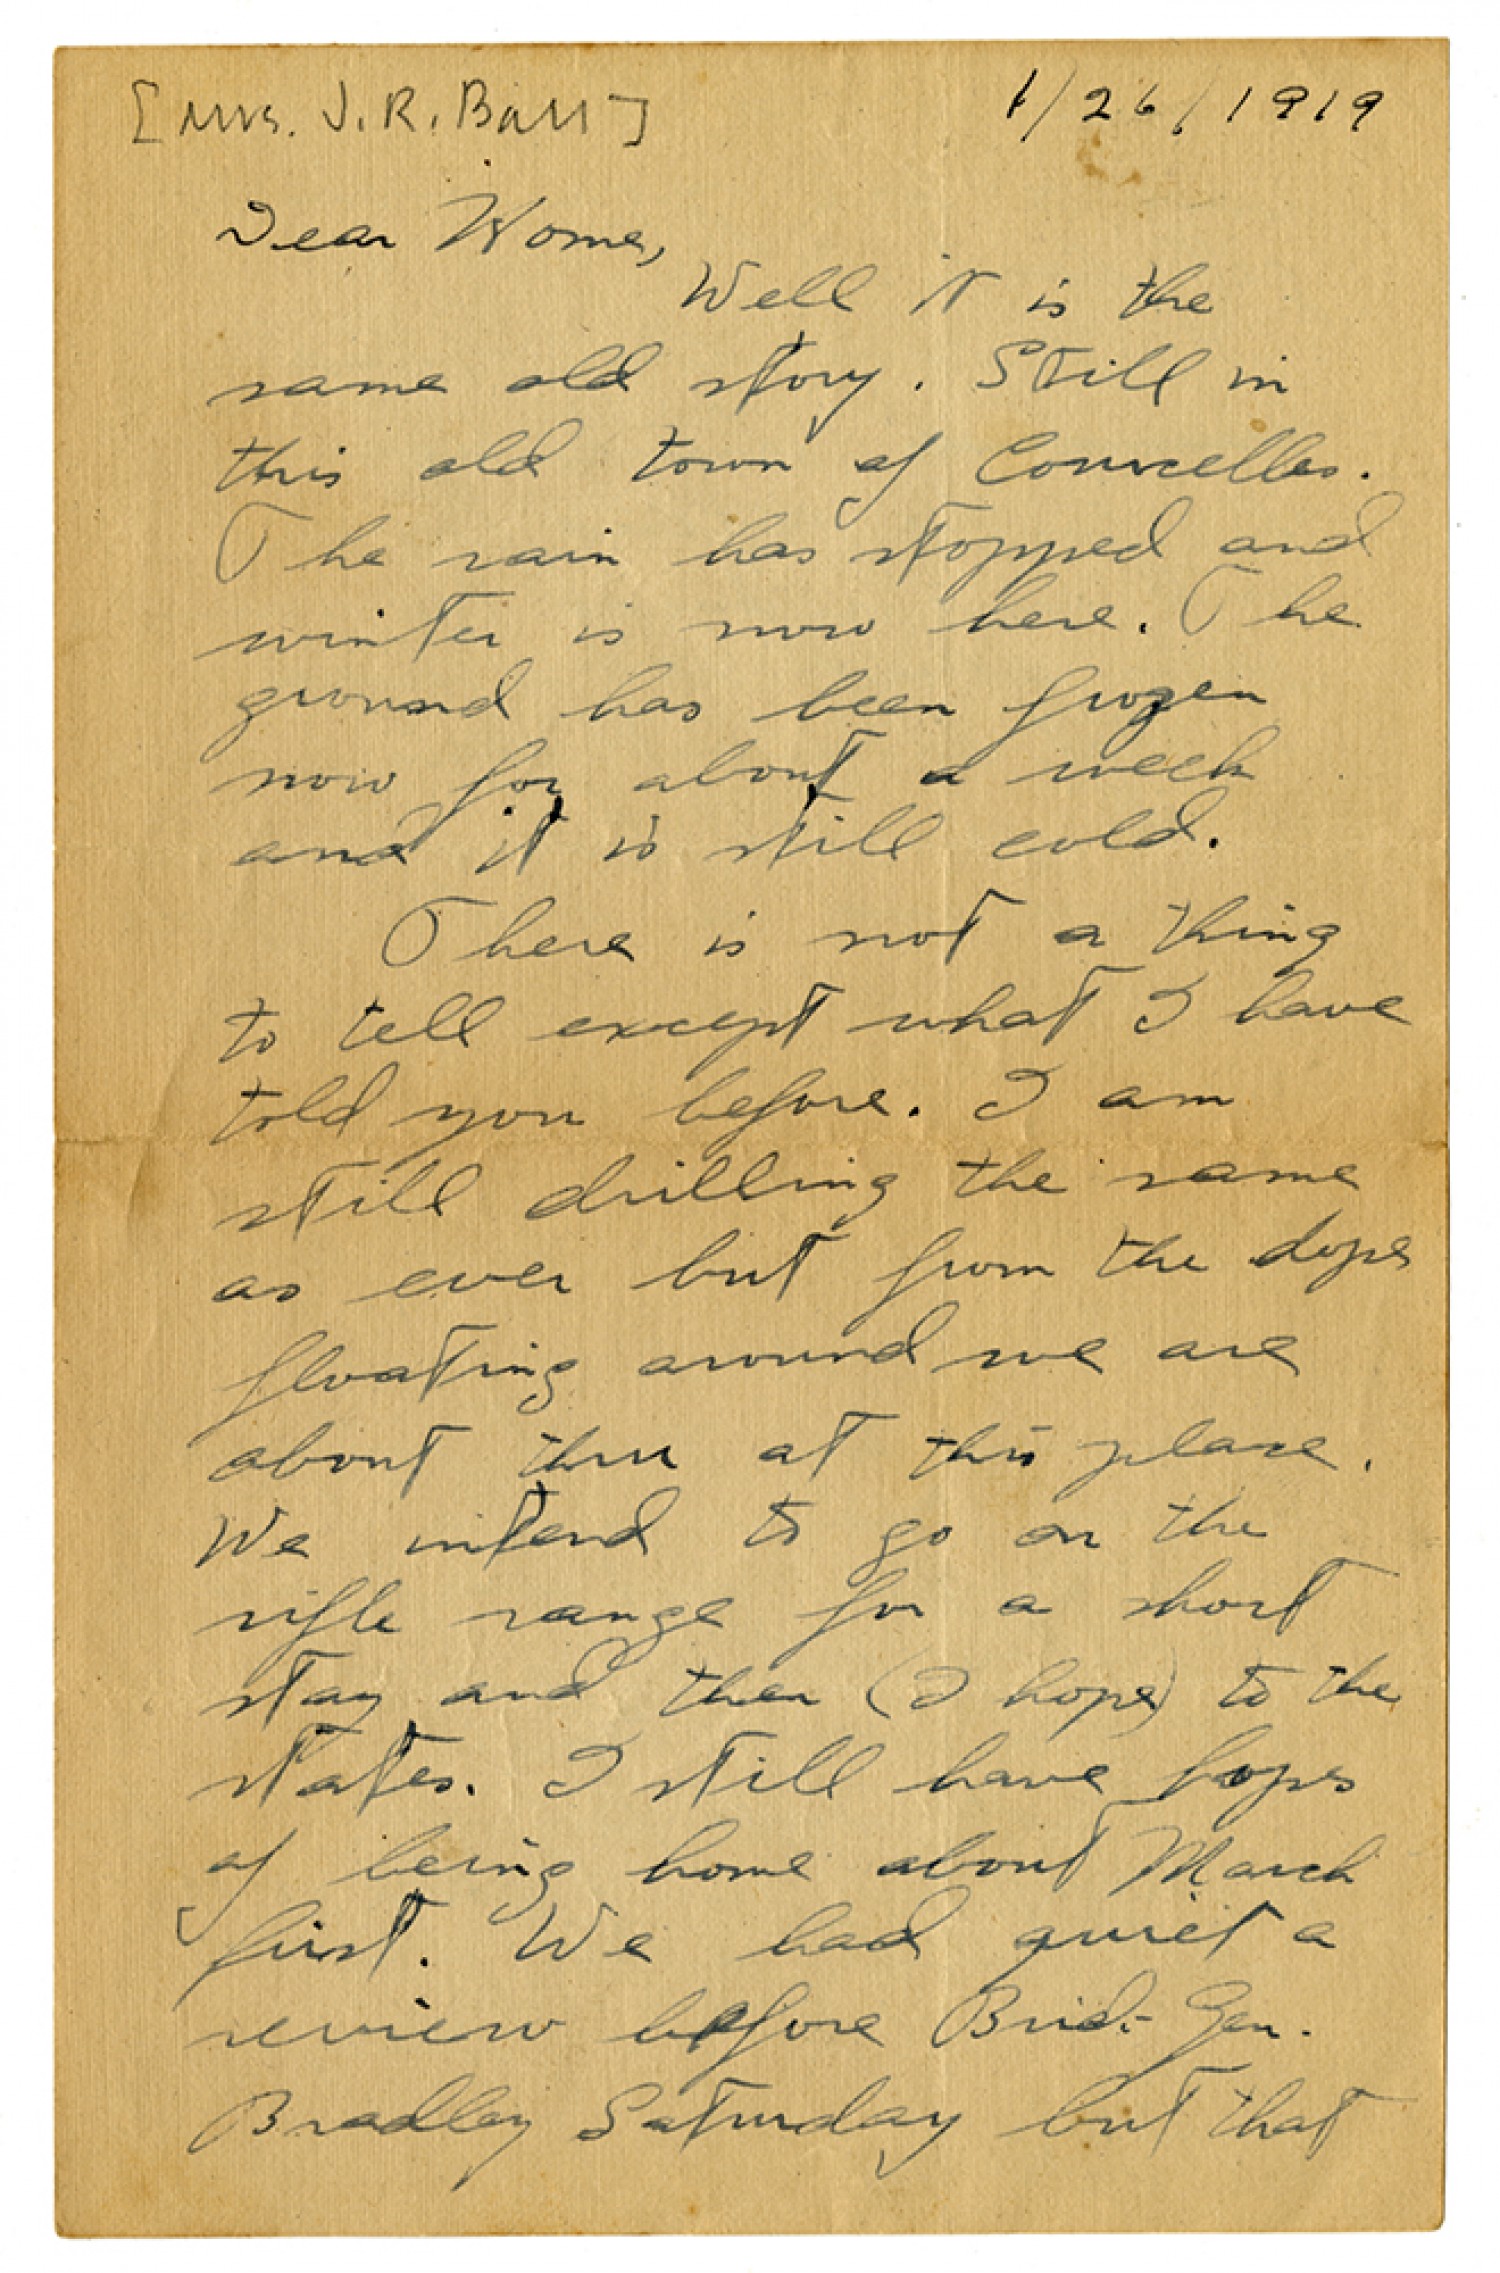 [Mrs. J. R. Ball]
1/26/1919
Dear Woms,
Well it is the
same old story. Still in
this old town of Courcelles.
The rain has stopped and
winter is now here. The
ground has been frozen
now for about a week
and it is still cold.
There is not a thing
to tell except what I have
told you before. I am
still drilling the same
as ever but from the dope
floating around we are
about thru at this place.
We intend to go on the
rifle range for a short
stay and then (I hope) to the
states. I still have hopes
of being home about March
first. We had quiet a
review before Brid. Gen.
Bradley Saturday but that